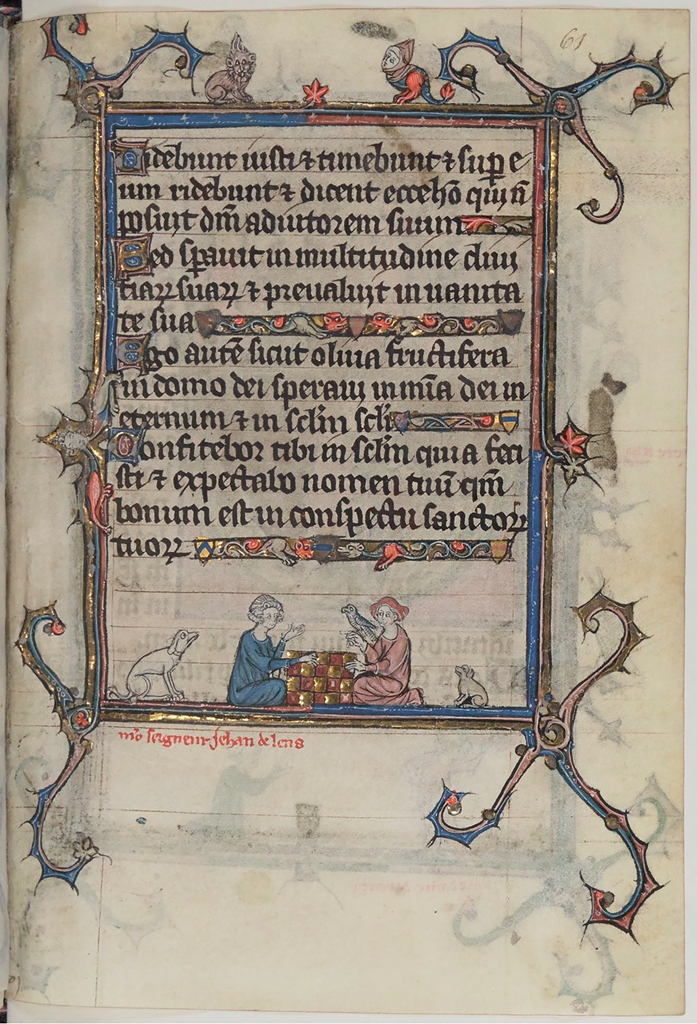 61
Videbunt iusti ⁊ timebunt ⁊ sup e
um ridebunt ⁊ dicent ecce hō qui ñ
posuit dm̄ adiutorem suum
Sed sp̄auit in multitudine diui
tiaꝝ suaꝝ ⁊ preualuit in uanita
te sua
Ego autē sicut oliua fructifera
in domo dei speraui in mīa dei in
eternum ⁊ in sclm̄ scli
Confitebor tibi in sclm̄ quia feci
sti ⁊ expectabo nomen tuū qm̄
bonum est in conspectu sanctoꝝ
tuoꝝ
mō seigneur Jehan de lens